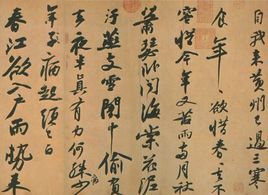 自我來黃州已過三寒
食年〻欲惜春〻去不
容惜今年又苦雨兩月秋
蕭瑟卧聞海棠花泥
汙燕支雪闇中偷負
去夜半真有力何殊病少
年子病起須已白
春江欲入戶雨勢來